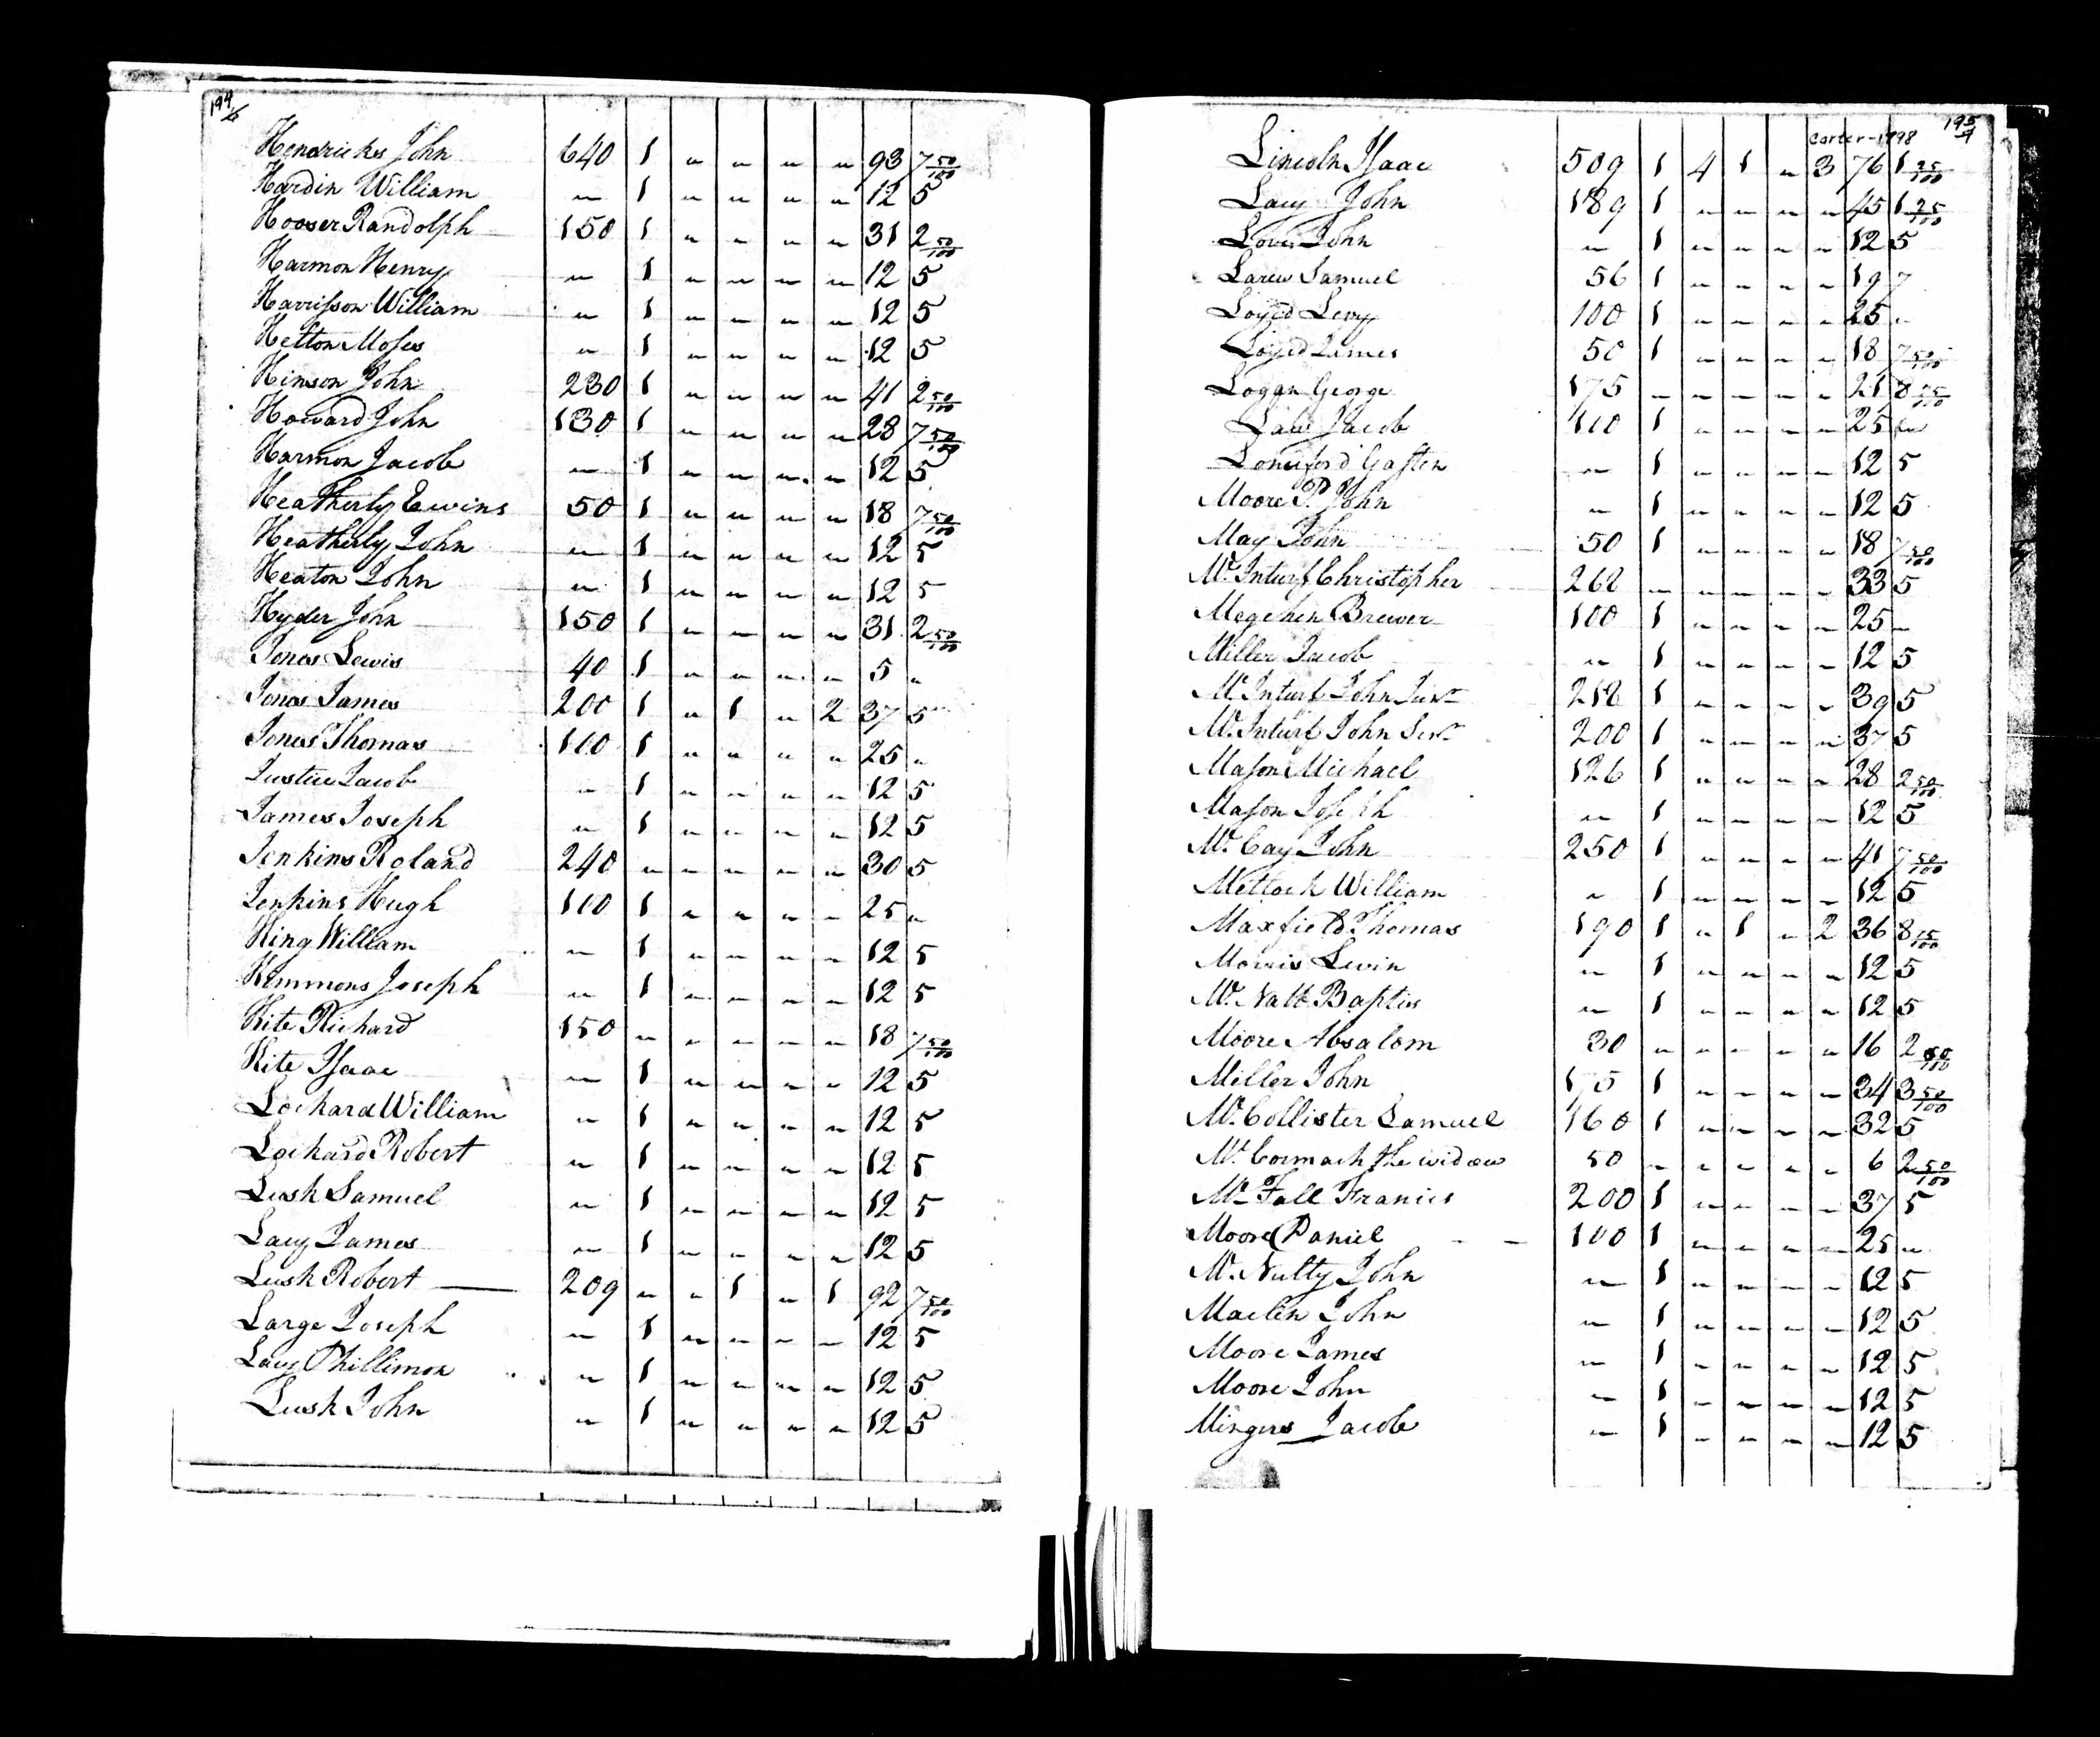 194/6
Hendricks John 640 1 " " " " 93 7 50/100
Hardin William " 1 " " " " 12 5
Hooser Randolph 150 1 " " " " 31 2 50/100
Harmon Henry " 1 " " " " 12 5
Harrisson William " 1 " " " " 12 5
Helton Moses " 1 " " " " 12 5
Hinson John 230 1 " " " " 41 2 50/100
Howard John 130 1 " " " " 28 7 50/100
Harmon Jacob " 1 " " " " 12 5
Heatherly Ewins 50 1 " " " " 18 7 50/100
Heatherly John " 1 " " " " 12 5
Heaton John " 1 " " " " 12 5
Hyder John 150 1 " " " " 31 2 50/100
Jones Lewis 40 1 " " " " 5 "
Jones James 200 1 " 1 " 2 37 5
Jones Thomas 100 1 " " " " 25 "
Justice Jacob " 1 " " " " 12 5
James Joseph " 1 " " " " 12 5
Jenkins Roland 240 " " " " " 30 5
Jenkins Hugh 100 1 " " " " 25 "
King William " 1 " " " " 12 5
Kimmons Joseph " 1 " " " " 12 5
Kite Richard 150 " " " " " 18 7 50/100
Kite Isaac " 1 " " " " 12 5
Lockard William " 1 " " " " 12 5
Lockard Robert " 1 " " " " 12 5
Lusk Samuel " 1 " " " " 12 5
Lacy James " 1 " " " " 12 5
Lusk Robert 209 " " 1 " 1 92 7 50/100
Large Joseph " 1 " " " " 12 5
Lacy Phillimon " 1 " " " " 12 5
Lusk John " 1 " " " " 12 5
Carter-1798 195/7
Lincoln Isaac 509 1 4 1 " 3 76 1 25/100
Lacy John 189 1 " " " " 45 1 25/100
John " 1 " " " " 12 5
Larew Samuel 56 1 " " " " 19 7
Loyed Levy 100 1 " " " " 25 "
Loyed James 50 1 " " " " 18 7 50/100
Logan George 175 " " " " " 21 8 75/100
Jacob 100 1 " " " " 25 "
Gasten " 1 " " " " 12 5
Moore P. John " 1 " " " " 12 5
May John 50 1 " " " " 18 7 50/100
Mc. Inturf Christopher 262 " " " " " 33 5
Megehen Brewer 100 1 " " " " 25 "
Miller Jacob " 1 " " " " 12 5
Mc. Inturf John Junr 212 1 " " " " 39 5
Mc. Inturf John Senr 200 1 " " " " 37 5
Mason Michael 126 1 " " " " 28 2 50/100
Mason Joseph " 1 " " " " 12 5
Mc. Cay John 250 1 " " " " 41 7 50/100
Metlock William " 1 " " " " 12 5
Maxfield Thomas 190 1 " 1 " 2 36 8 75/100
Morris Levin " 1 " " " " 12 5
Mc. Natt Baptis " 1 " " " " 12 5
Moore Absalom 30 " " " " " 16 2 50/100
Miller John 175 1 " " " " 34 3 50/100
Mc. Collister Samuel 160 1 " " " " 32 5
Mc. Cormack the widow 50 " " " " " 6 2 50/100
Mc Fall Francis 200 1 " " " " 37 5
Moore Daniel 100 1 " " " " 25 "
Mc. Nulty John " 1 " " " " 12 5
Maclin John " 1 " " " " 12 5
Moore James " 1 " " " " 12 5
Moore John " 1 " " " " 12 5
Mingus Jacob " 1 " " " " 12 5